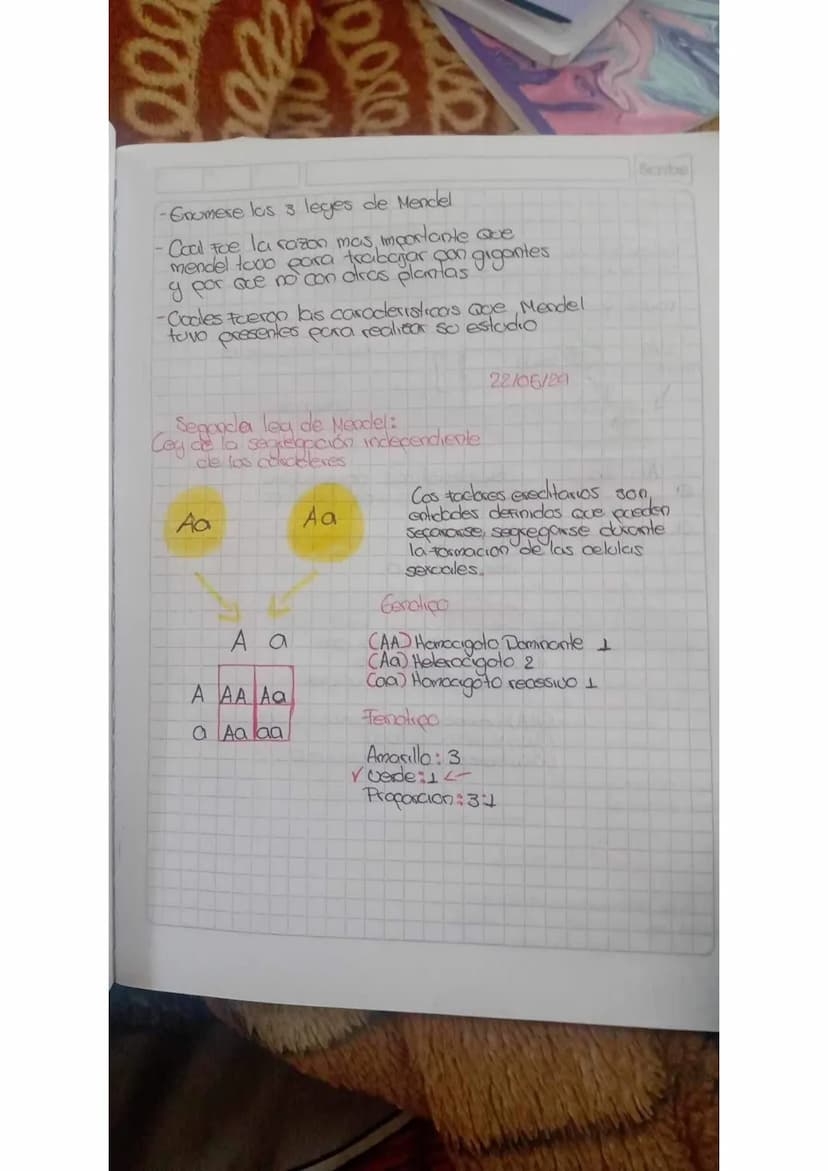 Scribe
-Enumere las 3 leyes de Mendel
- Cual fue la razon mas importante que
mendel tuvo para trabajar con gigantes
y por que no con otras plantas
-Cuales fueron las caracteristicas que Mendel
tuvo presentes para realizar su estudio
22/05/20
Segunda ley de Mendel:
Ley de la segregación independiente
de los caracteres
Aa Aa
Los factores ereditarios son
entidades definidas que pueden
separarse, segregarse durante
la formacion de las celulas
sexuales.
A a
A AA Aa
a Aa aa
Genotipo
(AA) Homocigoto Dominante 1
(Aa) Heterocigoto 2
(aa) Homocigoto recessivo 1
Fenotipo
Amarillo: 3
Verde: 1
Proporcion: 3:1